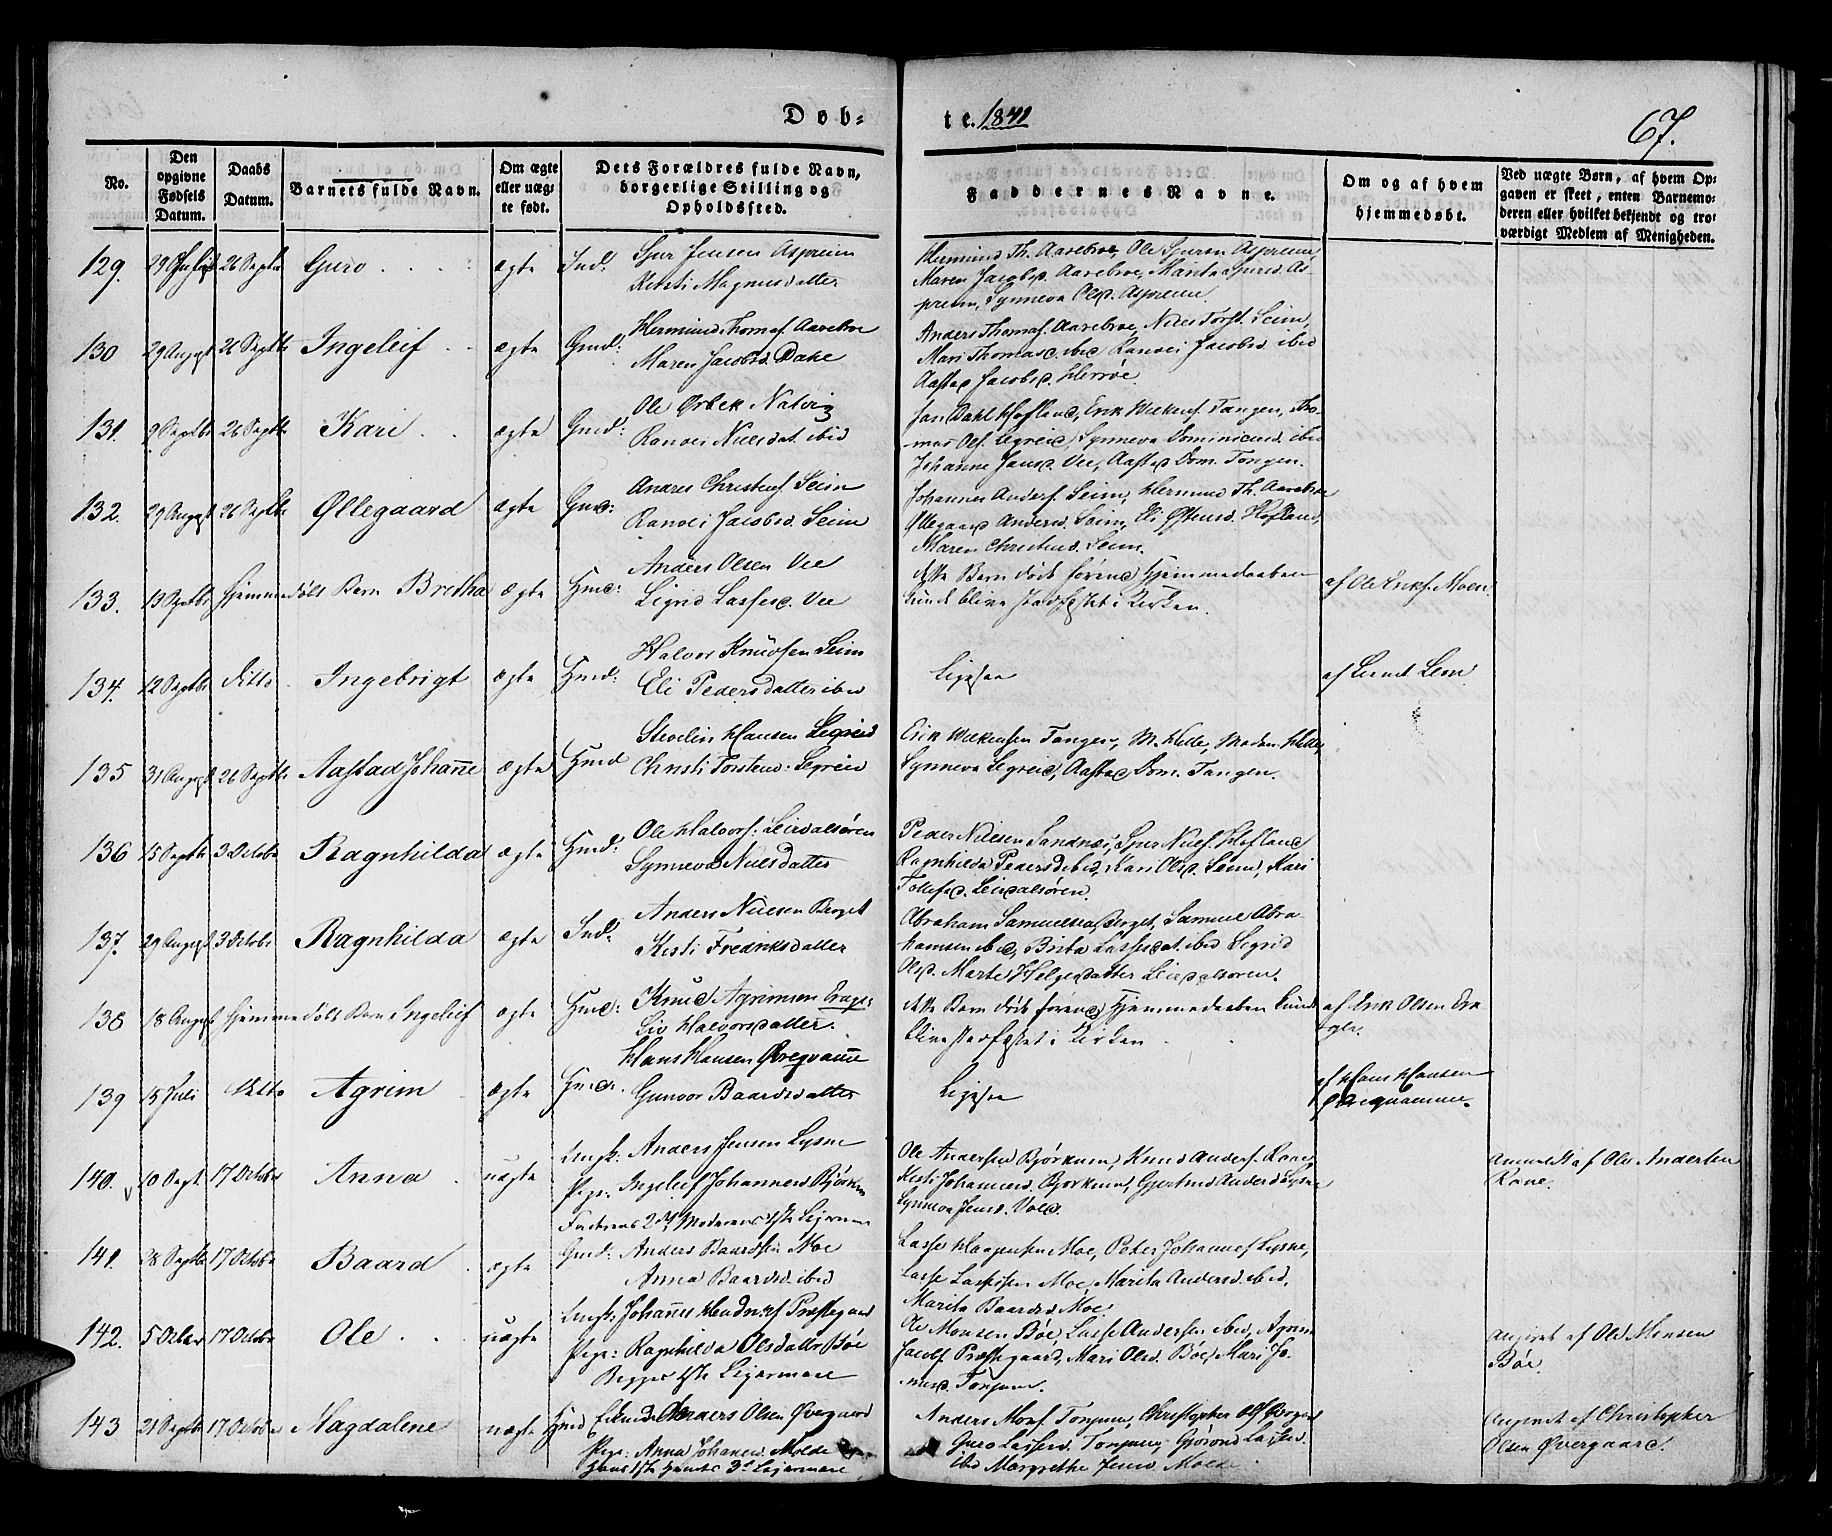 Døb-
te. 1841
67.
No.
Den opgivne Fødsels Datum.
Daabs Datum.
Barnets fulde Navn.
Om ægte eller uægte født.
Dets Forældres fulde Navn, borgerlige Stilling og Opholdssted.
Faddernes Navne.
Om og af hvem hjemmedøbt.
Ved uægte Børn, af hvem Opgaven er skeet, enten Barnemoderen eller hvilket bekjendt og troværdigt Medlem af Menigheden.
129. 29 Juli 26 Septbr Guro ægte Ind.
Sjur Jensen Aspreim
Kirsti Magnusdatter
Hermund Th. Aarebroe, Ole Sjursen Aspreim
Maren Jacobsd. Aarebroe, Marita Sjursd. As-
preim, Synneva Olsd. Aspreim.
130 29 August 26 Septbr Ingeleif ægte Gmd:
Hermund Thomas. Aarebroe
Maren Jacobsd. Dahle
Anders Thomas. Aarebroe, Niels Torst. Seim,
Mari Thomasd. ibid Ranvei Jacobsd. ibid
Aasta Jacobsd. Herröe
131. 9 Septbr 26 Septbr Kari ægte Gmd:
Ole Ørbek Natvig
Ranvei Nielsdat. ibid
Jan Dahl Hofland, Erik Wilkens. Tangen, Tho-
mas Ols. Legreid, Synneva Dominicusd. ibid
Johanne Jansd. Vee, Aasta Dom. Tangen.
132. 29 August 26 Septbr Øllegaard ægte Gmd:
Anders Christens. Seim
Ranvei Jacobsd. Seim
Johannes Anders. Seim, Hermund Th. Aarebroe
Øllegaard Andersd. Seim, Eli Østensd. Hofland,
Maren Christensd. Seim.
133. 13 Septbr Hjemmedöbt Barn Bretha ægte Hmd:
Anders Olsen Vee
Sigrid Lassesd. Vee
dette Barn døde førend Hjemmedaaben
kunde blive stadfæstet i Kirken.
af Ole Eriks. Moen.
134. 12 Septbr ditto Ingebrigt ægte Hmd:
Halvor Knudsen Seim
Eli Pedersdatter ibid
Ligesaa
af Lem
135 31 August 26 Septbr Aastad Johanne ægte Hmd
Hansen Legreid
Christi Torstensd. Legreid
Erik Wilkensen Tangen, M. Helle, Madam Helle,
Synneva Legreid, Aasta Dom. Tangen.
136 15 Septbr 3 Octobr Ragnhilda ægte Hmd:
Ole Halvors. Leirdalsören
Synneva Nielsdatter
Peder Nielsen Sandnæs, Sjur Niels. Hofland
Ragnhilda Pedersd. ibid, Kari Olsd. Seim, Kari
Tollefsd. Leirdalsören.
137. 29 August 3 Octobr Ragnhilda ægte Ind:
Anders Nielsen Berget
Kirsti Fredriksdatter
Abraham Samuelsen Berget, Samuel Abra-
hamsen ibid, Brita Lassesdat. ibid Sigrid
Olsd. Marte Helgesdatter Leirdalsøren.
138 18 August Hjemmedöbt Barn Ingeleif ægte Hmd:
Knud Agrimsen
Liv Halvorsdatter.
dette Barn døde førend Hjemmedaaben kunde
blive stadfæstet i Kirken
af Erik Olsen
139 15 Juli ditto Agrim ægte Hmd.
Hans Hansen Øvreqvamme
Gunvor Baardsdatter
Ligesaa
af Hans Hansen
Øvreqvamme.
140. 10 Sept 17 Octobr Anna uægte
Ungk: Anders Jensen Lysne
Pige: Ingeleif Johannesd. Björkum
Faderens 2det Moderens 1ste Leiermaal
Ole Andersen Bjørkum, Knud Anders. Raae
Kirsti Johannesd. Bjørkum, Gjertrud Andersd. Lysne
Synneva Jensd. Vold.
Anmeldt af Ole Andersen
Raae.
141. 28 Septbr 17 Octobr Baard ægte
Gmd: Anders Baardsen Moe
Anna Baardsd. ibid
Lasse Haagensen Moe, Peter Johannes. Lysne,
Lasse Lassesen Moe, Marita Andersd. ibid,
Marita Baardsd. Moe
142. 5 Octbr 17 Octobr Ole uægte
Ungk: Johannes Hendriks. Præstegaard
Pige: Ragnhilda Olsdatter Böe
Begges 1ste Leiermaal
Ole Monsen Böe, Lasse Andersen ibid, Agrim
Jacobs. Præstegaard, Mari Olsd. Böe, Mari Jo-
nesd. Tonjum.
Angivet af Ole Monsen
Bøe.
143 21 Septbr 17 Octobr Magdalene uægte Hmd
Anders Olsen Øvregaard
Pige: Anna Johannesd. Molde
Hans 1ste Hendes 3de Leiermaal
Anders Mons. Tonjum, Christopher Ols. Øvregaard
Guro Lassesd. Tonjum, Gjörond Lassesd.
ibid Margrethe Jensd. Molde
Angivet af Christopher
Olsen Øvergaard.